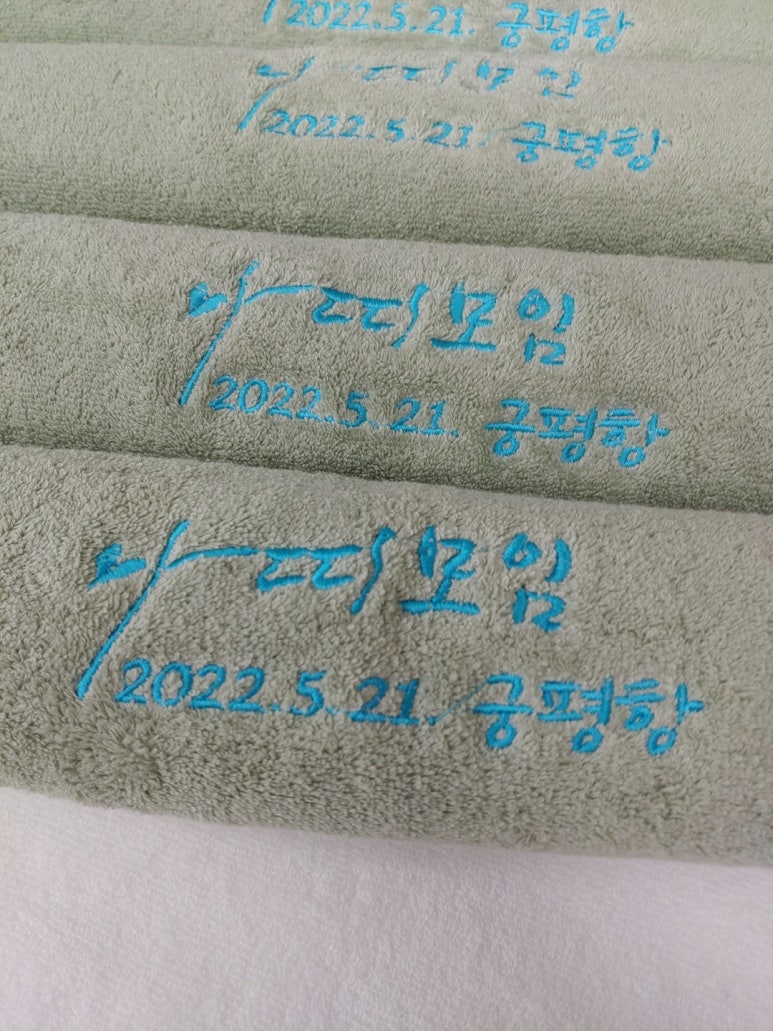 2022.5.21. 궁평항
나띠모임
2022.5.21. 궁평항
나띠모임
2022.5.21. 궁평항
나띠모임
2022.5.21. 궁평항